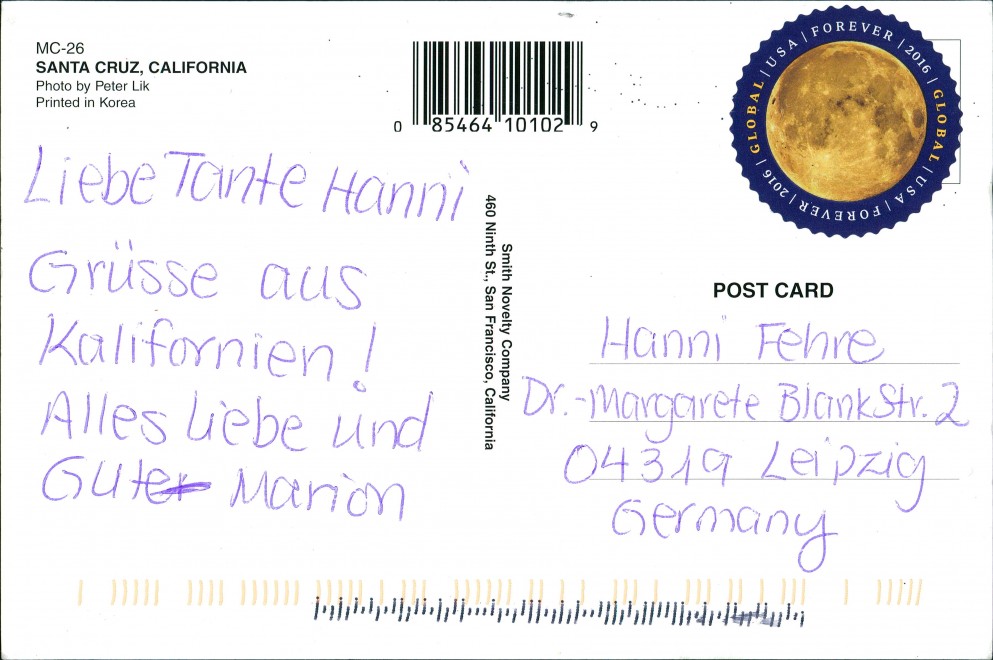 MC-26
SANTA CRUZ, CALIFORNIA
Photo by Peter Lik
Printed in Korea
0 85464 10102 9
GLOBAL | USA | FOREVER | 2016 | GLOBAL | USA | FOREVER | 2016 |
Liebe Tante Hanni
Grüsse aus
Kalifornien!
Alles Liebe und
Marion
Smith Novelty Company
460 Ninth St., San Francisco, California
POST CARD
Hanni Fehre
Dr.-Margarete Blank Str. 2
04319 Leipzig
Germany